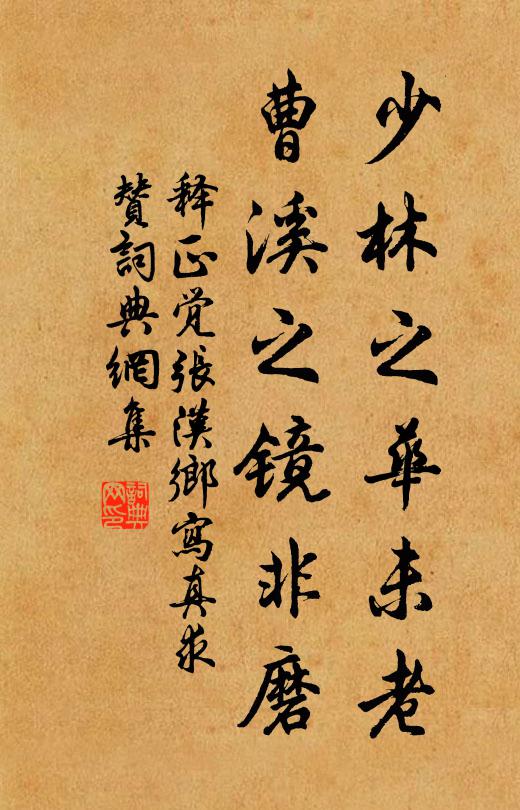 少林之華未老
曹溪之镜非磨
释正觉張漢鄉寫真求
贊詞典網集
詞典
网印